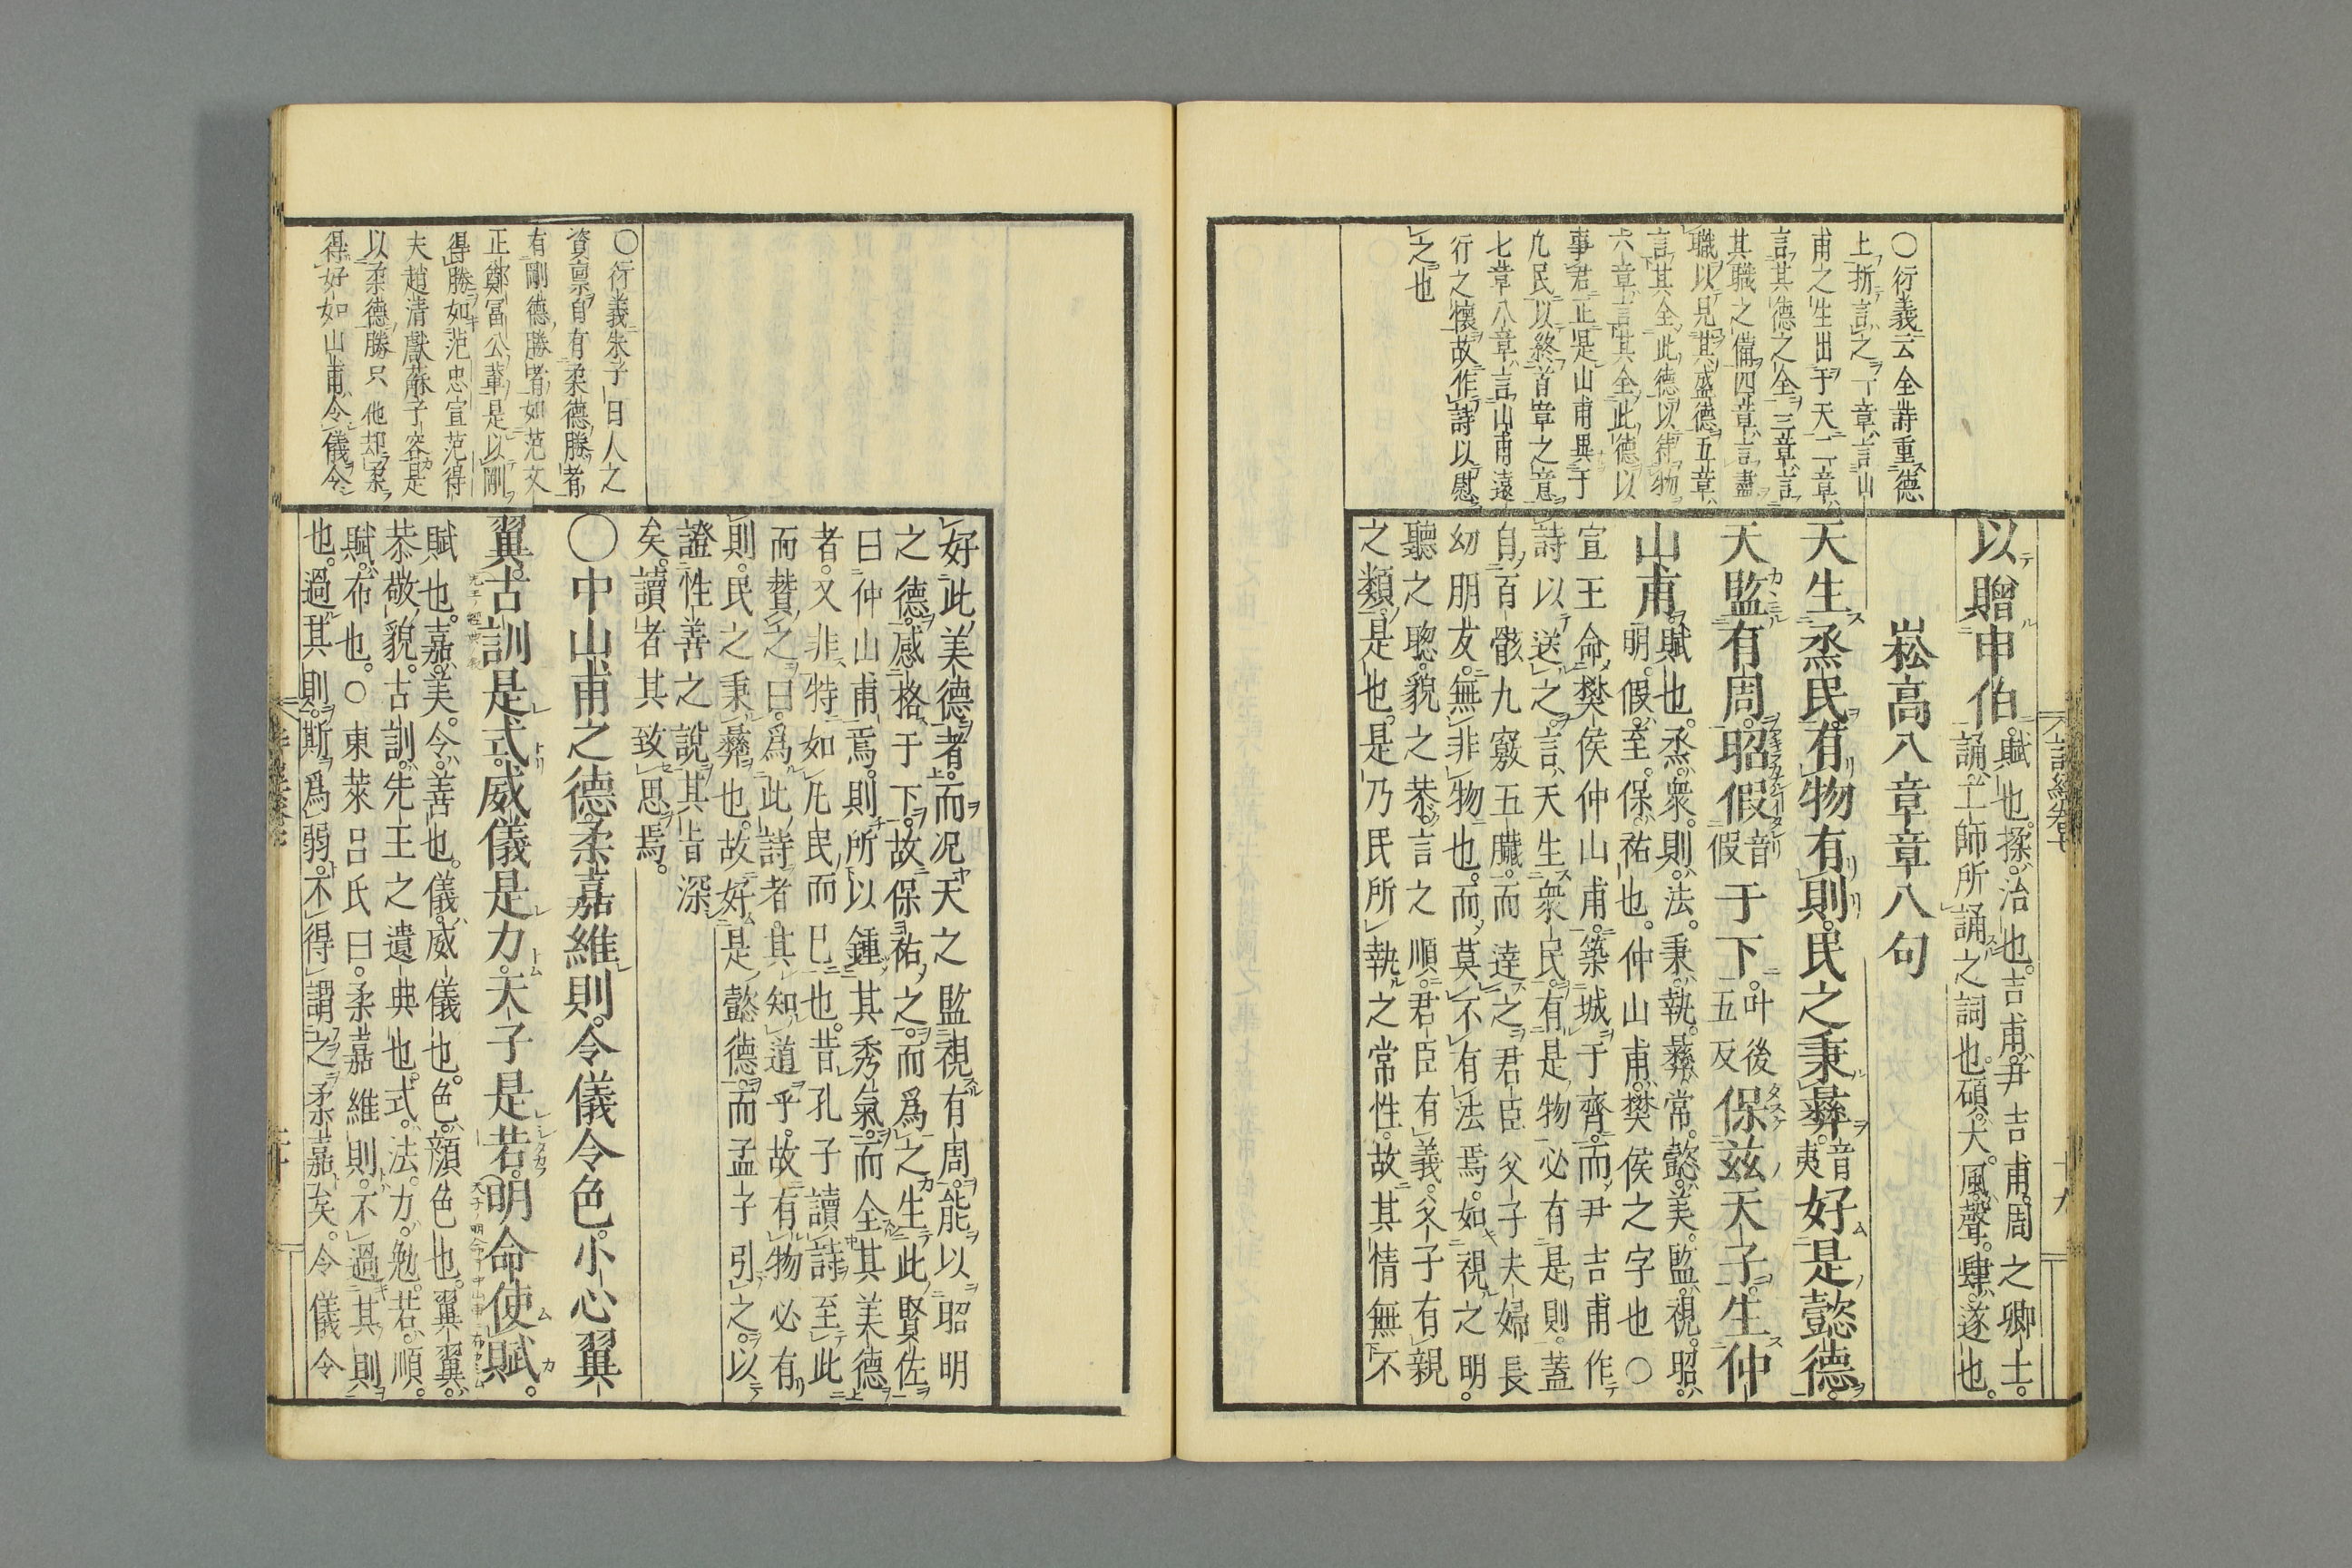 詩經卷七
十九
○衍義云全詩重德
上折言之一章言山
甫之生出于天二章
言其德之全三章言
其職之備四章言盡
職以見其盛德五章
言其全此德以待物
六章言其全此德以
事君正是山甫異于
凡民以終首章之意
七章八章言山甫遠
行之懷故作詩以慰
之也
以贈申伯。賦也。揉、治也。吉甫、尹吉甫。周之卿士。
誦、工師所誦之詞也。碩、大。風、聲。肆、遂也。
崧高八章章八句
天生烝民。有物有則。民之秉彝。音夷好是懿德。
天監有周。昭假音假于下。叶後五反保茲天子。生仲
山甫。賦也。烝、衆。則、法。秉、執。彝、常。懿、美。監、視。昭、
明。假、至。保、祐也。仲山甫、樊侯之字也○
宣王命樊侯仲山甫。築城于齊。而尹吉甫作
詩以送之。言、天生衆民。有是物必有是則。蓋
自百骸九竅五臟。而達之君臣父子夫婦長
幼朋友。無非物也。而莫不有法焉。如視之明。
聽之聰。貌之恭。言之順。君臣有義。父子有親
之類。是也。是乃民所執之常性。故其情無不
○衍義朱子曰人之
資稟自有柔德勝者
有剛德勝者如范文
正鄭富公輩是以剛
得勝如范忠宣范得
夫趙清獻蘇子容是
以柔德勝只他却柔
得好如山甫令儀令
好此美德者。而况天之監視有周。能以昭明
之德。感格于下。故保祐之。而爲之生此賢佐
曰仲山甫焉。則所以鍾其秀氣。而全其美德
者。又非特如凡民而已也。昔孔子讀詩至此
而贊之曰。爲此詩者。其知道乎。故有物必有
則。民之秉彝也。故好是懿德。而孟子引之。以
證性善之說。其旨深
矣。讀者其致思焉。
○中山甫之德。柔嘉維則。令儀令色。小心翼
翼。古訓是式。威儀是力。天子是若。明命使賦。
賦也。嘉、美。令、善也。儀、威儀也。色、顔色也。翼翼、
恭敬貌。古訓、先王之遺典也。式、法。力、勉。若、順。
賦、布也。○東萊呂氏曰。柔嘉維則。不過其則
也。過其則。斯爲弱。不得謂之柔嘉矣。令儀令